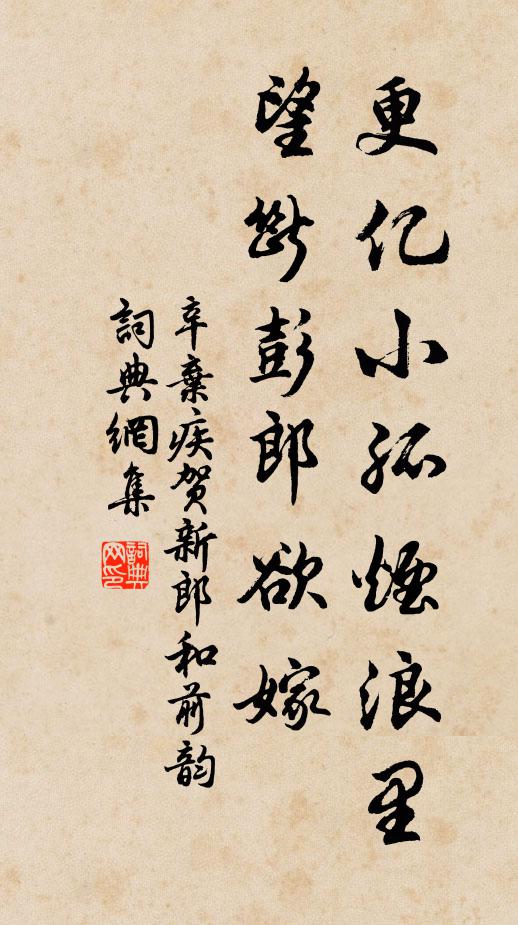 更亿小孤煙浪里
望斷彭郎欲嫁
辛棄疾贺新郎和前韵
詞典網集
詞典
网印